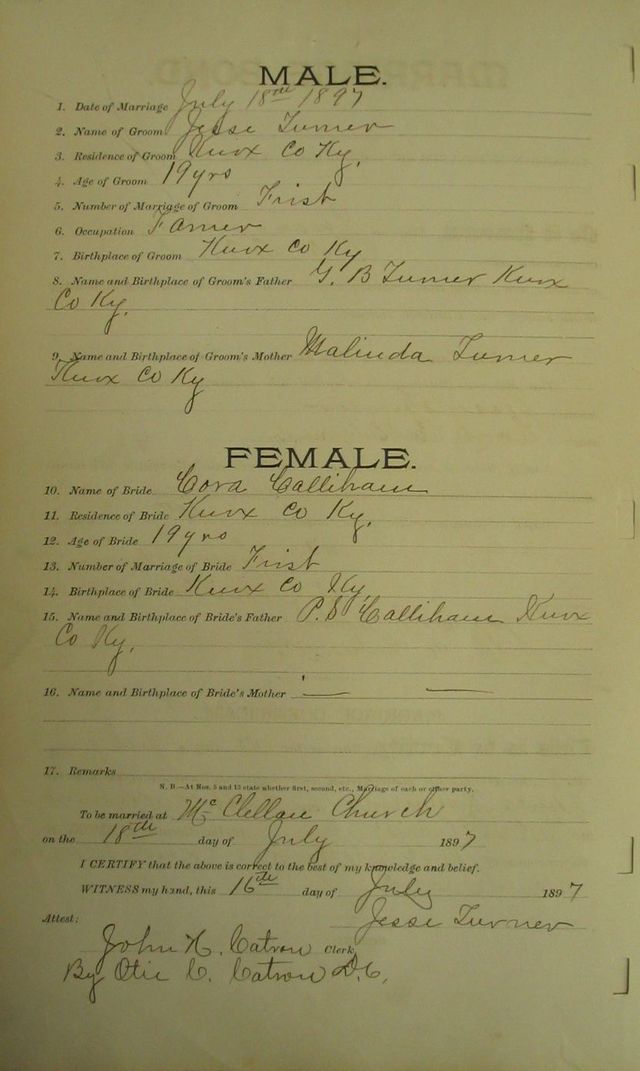 MALE.
1. Date of Marriage July 18th 1897
2. Name of Groom Jesse Turner
3. Residence of Groom Knox Co Ky.
4. Age of Groom 19 yrs
5. Number of Marriage of Groom Frist
6. Occupation Farmer
7. Birthplace of Groom Knox Co Ky
8. Name and Birthplace of Groom's Father G. B Turner Knox
Co Ky.
9. Name and Birthplace of Groom's Mother Malinda Turner
Knox Co Ky
FEMALE.
10. Name of Bride Cora Calliham
11. Residence of Bride Knox Co Ky.
12. Age of Bride 19 yrs
13. Number of Marriage of Bride Frist
14. Birthplace of Bride Knox Co Ky,
15. Name and Birthplace of Bride's Father P. S. Calliham Knox
Co Ky.
16. Name and Birthplace of Bride's Mother — —
17. Remarks
N. B.—At Nos. 5 and 13 state whether first, second, etc., Marriage of each or either party.
To be married at Mc Clellan Church
on the 18th day of July 1897
I CERTIFY that the above is correct to the best of my knowledge and belief.
WITNESS my hand, this 16th day of July 1897
Jesse Turner
Attest:
John H. Catron Clerk
By Otie C. Catron D.C.